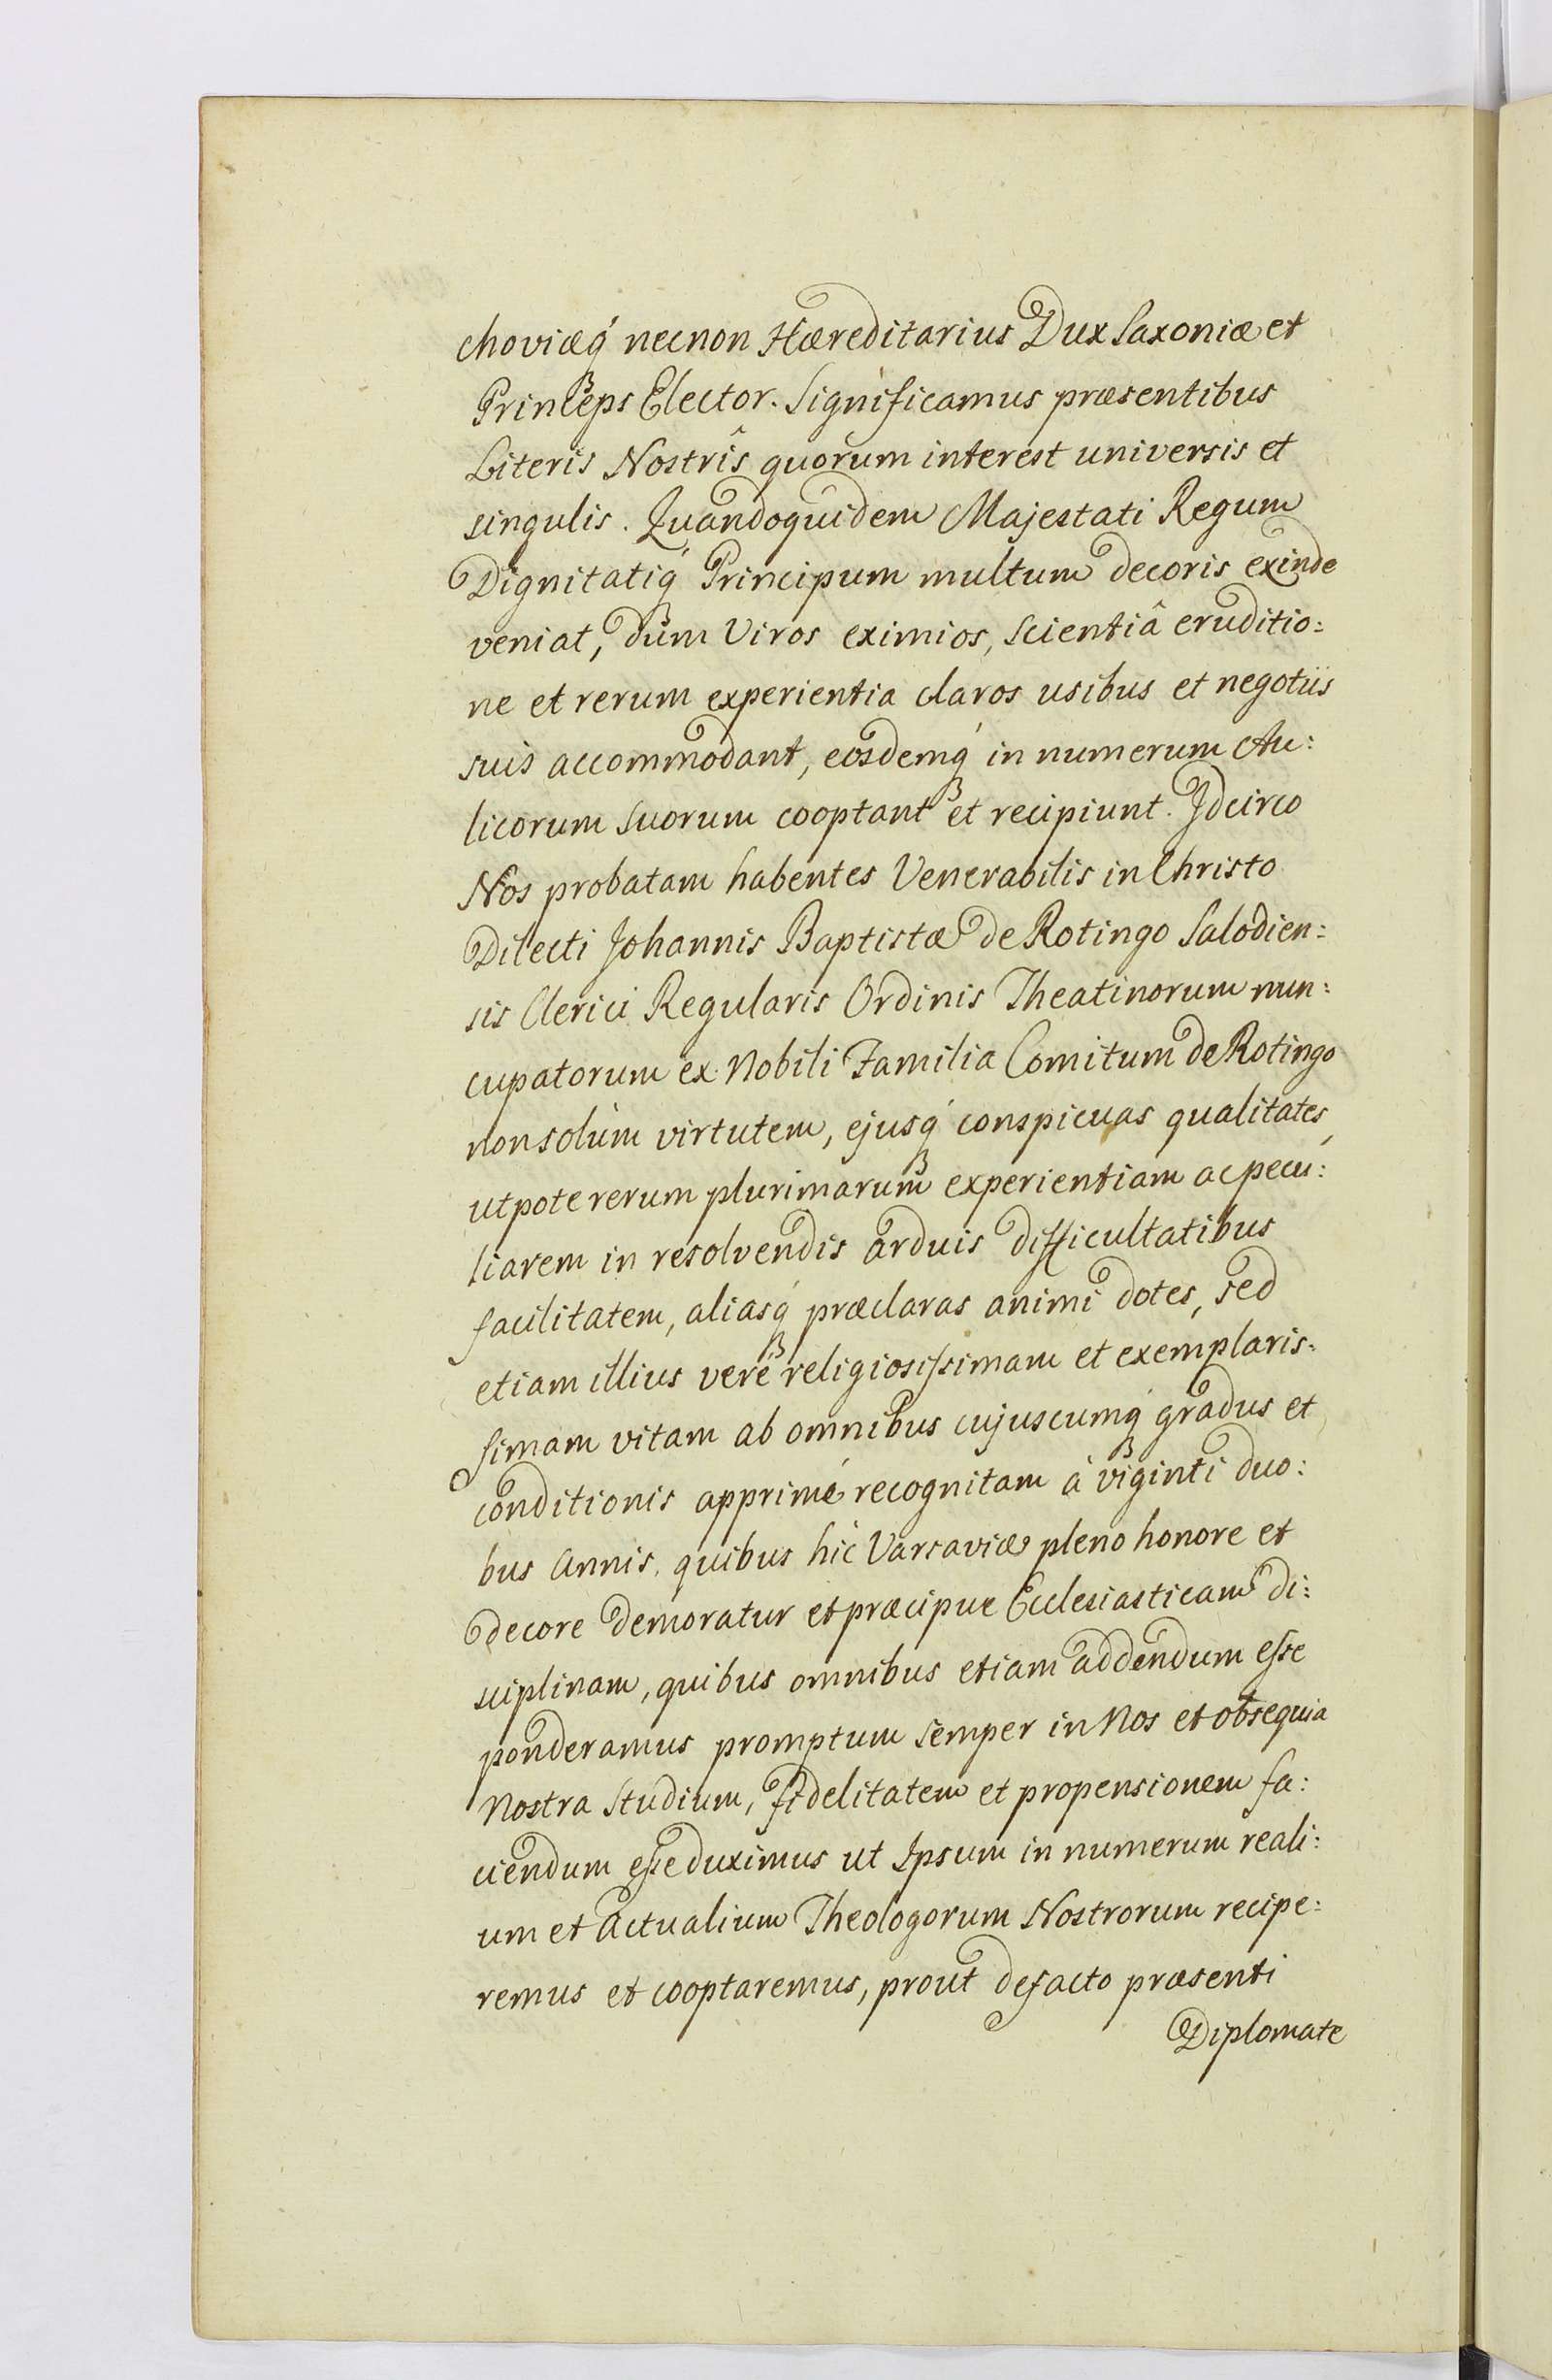 choviæq́ necnon Hæreditarius Dux Saxoniæ et
Princeps Elector. Significamus præsentibus
Literis Nostrîs quorum interest universis et
singulis. Quandoquidem Majestati Regum
Dignitatiq́ Principum multum decoris exinde
veniat, dum Viros eximios, scientiâ eruditio:
ne et rerum experientia claros usibus et negotiis
suis accommodant, eosdemq́ in numerum Au:
licorum suorum cooptant et recipiunt. Idcirco
Nos probatam habentes Venerabilis in Christo
Dilecti Johannis Baptistæ de Rotingo Salodien:
sis Clerici Regularis Ordinis Theatinorum nun:
cupatorum ex Nobili Familia Comitum de Rotingo
non solùm virtutem, ejusq́ conspicuas qualitates,
utpote rerum plurimarum experientiam ac pecu:
liarem in resolvendis arduis difficultatibus
facilitatem, aliasq́ præclaras animi dotes, sed
etiam illius verè religiosissimam et exemplaris:
simam vitam ab omnibus cujuscumq́ gradus et
conditionis apprimé recognitam à viginti duo:
bus Annis, quibus hîc Varsaviæ pleno honore et
decore demoratur et præcipue Ecclesiasticam di:
sciplinam, quibus omnibus etiam addendum esse
ponderamus promptum semper in Nos et obsequia
Nostra studium, fidelitatem et propensionem fa:
ciendum esse duximus ut Ipsum in numerum reali:
um et Actualium Theologorum Nostrorum recipe:
remus et cooptaremus, prout defacto præsenti
Diplomate